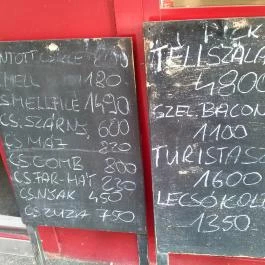 MELL 180
SMELLFILÉ 1490
CS.SZÁRNY 660
CS.MÁJ 820
CS.COMB 800
CS.FAR-HÁT 230
CS.NYAK 450
CS.ZUZA 750
TÉLISZALÁ
4800
SZEL.BACON
1100
TURISTASZ
1600
LECSÓKOLB
1350.